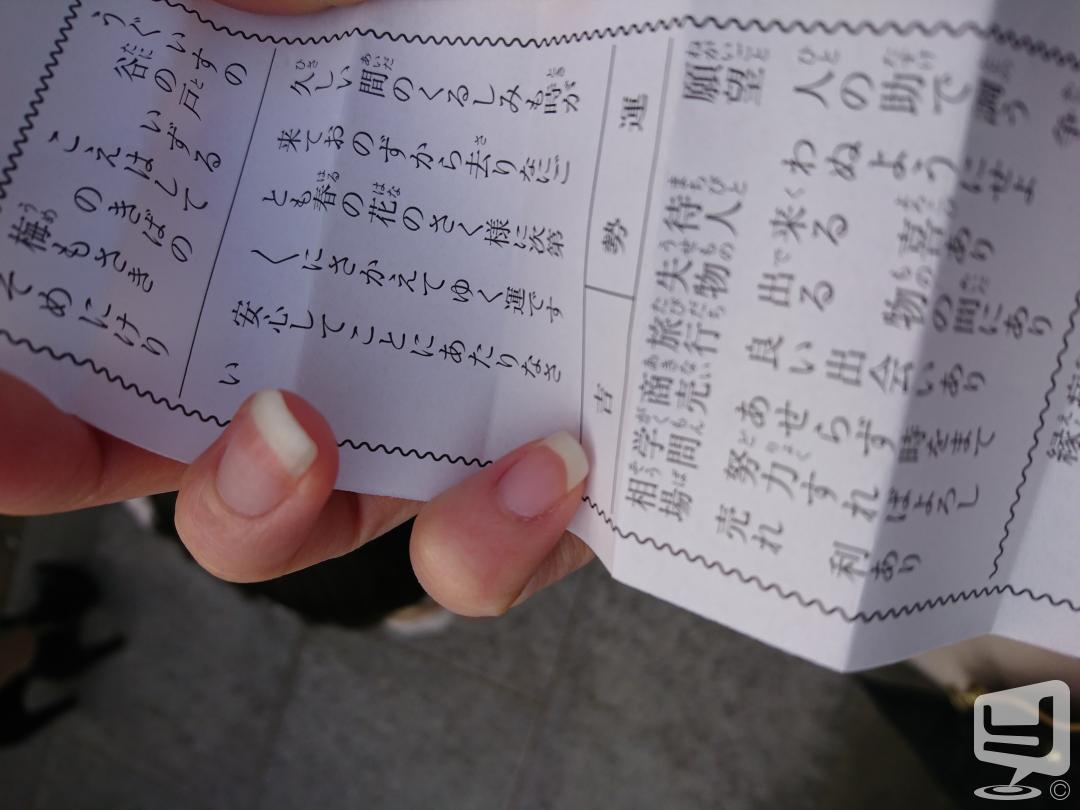 うぐいすの
谷の戸いずる
こえはして
のきばの
梅もさき
そめにけり
久しい間のくるしみも時が
来ておのずから去りなにご
とも春の花のさく様に次第
〱にさかえてゆく運です
安心してことにあたりなさ
い
運勢
吉
願望 人の助で調う
わぬようにせよ
待人 来る 喜あり
失物 出る 物の間にあり
旅行 良い出会いあり
商売 あせらず時をまて
学問 努力すればよろし
相場 売れ 利あり